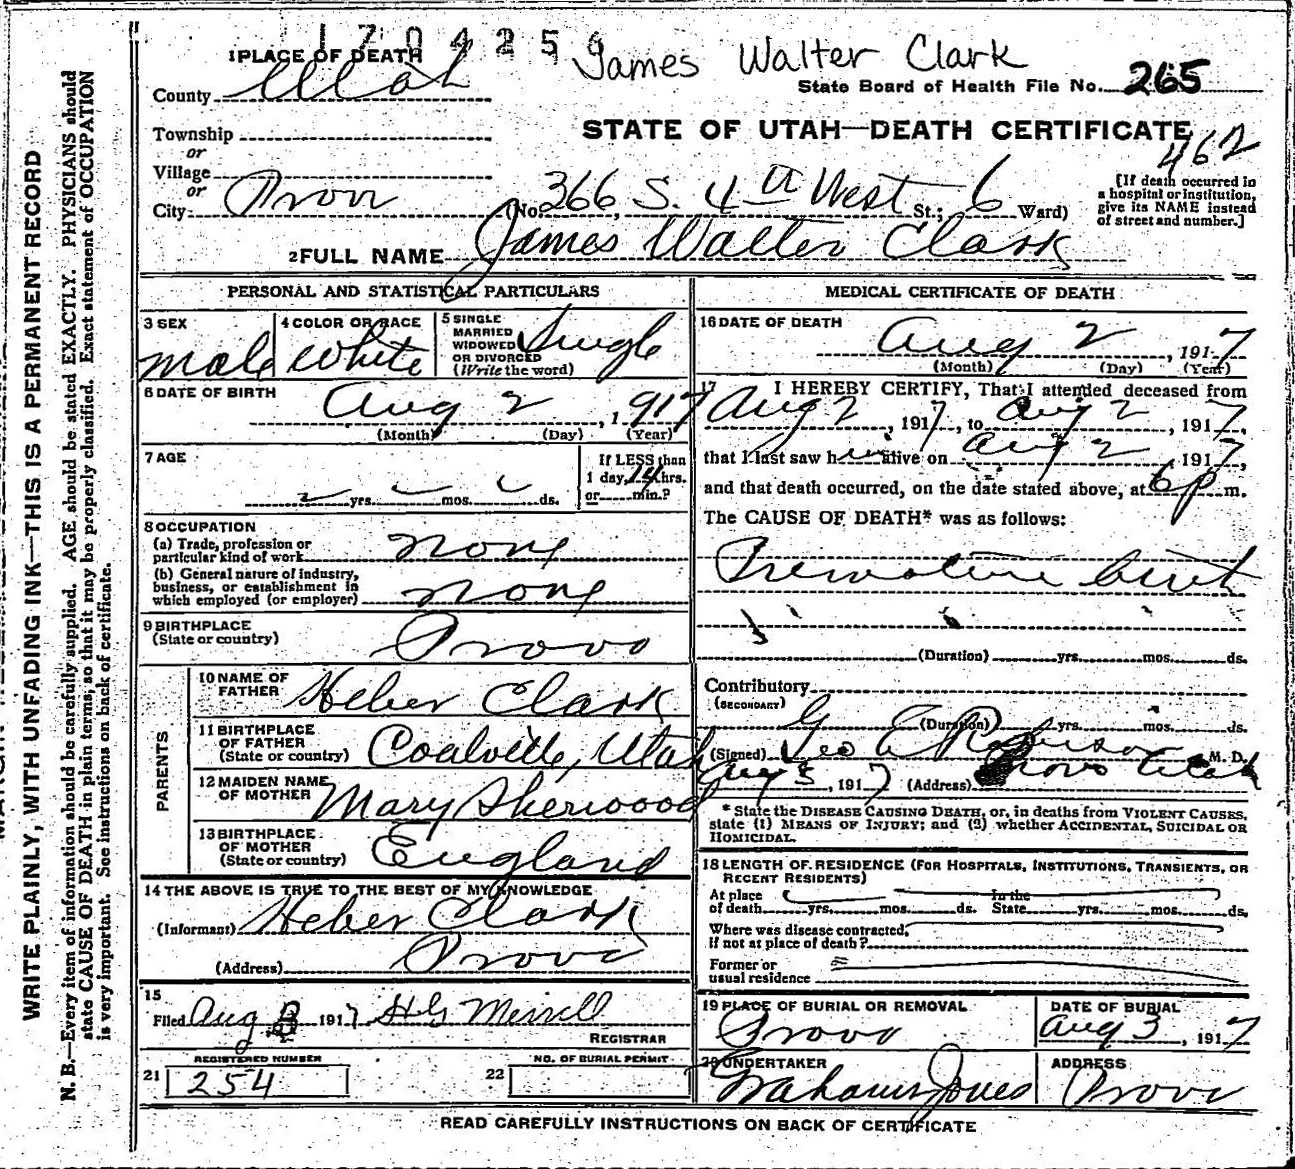 1704256
James Walter Clark
1 PLACE OF DEATH
State Board of Health File No. 265
County Utah
STATE OF UTAH—DEATH CERTIFICATE
462
Township
or
Village
or
City Provo (No. 366 S. 4th West St.; 6 Ward)
[If death occurred in
a hospital or institution,
give its NAME instead
of street and number.]
2 FULL NAME James Walter Clark
PERSONAL AND STATISTICAL PARTICULARS
3 SEX
male
4 COLOR OR RACE
White
5 SINGLE
MARRIED
WIDOWED
OR DIVORCED
(Write the word)
Single
6 DATE OF BIRTH
Aug 2, 1917
(Month) (Day) (Year)
7 AGE
yrs. mos. ds.
If LESS than
1 day, 14 hrs.
or min.?
8 OCCUPATION
(a) Trade, profession or
particular kind of work none
(b) General nature of industry,
business, or establishment in
which employed (or employer) none
9 BIRTHPLACE
(State or country) Provo
PARENTS
10 NAME OF
FATHER Heber Clark
11 BIRTHPLACE
OF FATHER
(State or country) Coalville, Utah
12 MAIDEN NAME
OF MOTHER Mary Sherwood
13 BIRTHPLACE
OF MOTHER
(State or country) England
14 THE ABOVE IS TRUE TO THE BEST OF MY KNOWLEDGE
(Informant) Heber Clark
(Address) Provo
15
Filed Aug 3 1917 H G Merrill
REGISTRAR
REGISTERED NUMBER
21 254
NO. OF BURIAL PERMIT
22
MEDICAL CERTIFICATE OF DEATH
16 DATE OF DEATH
Aug 2, 1917
(Month) (Day) (Year)
17 I HEREBY CERTIFY, That I attended deceased from
Aug 2, 1917, to Aug 2, 1917,
that I last saw him alive on Aug 2, 1917,
and that death occurred, on the date stated above, at 6 p m.
The CAUSE OF DEATH* was as follows:
Premature birth
(Duration) yrs. mos. ds.
Contributory
(SECONDARY)
(Duration) yrs. mos. ds.
(Signed) Geo E Robinson M. D.
Aug 3, 1917 (Address) Provo Utah
* State the DISEASE CAUSING DEATH, or, in deaths from VIOLENT CAUSES,
state (1) MEANS OF INJURY; and (2) whether ACCIDENTAL, SUICIDAL OR
HOMICIDAL.
18 LENGTH OF RESIDENCE (FOR HOSPITALS, INSTITUTIONS, TRANSIENTS, OR
RECENT RESIDENTS)
At place
of death yrs. mos. ds.
In the
State yrs. mos. ds.
Where was disease contracted,
if not at place of death?
Former or
usual residence
19 PLACE OF BURIAL OR REMOVAL
Provo
DATE OF BURIAL
Aug 3, 1917
20 UNDERTAKER
Graham Jones
ADDRESS
Provo
READ CAREFULLY INSTRUCTIONS ON BACK OF CERTIFICATE
WRITE PLAINLY, WITH UNFADING INK—THIS IS A PERMANENT RECORD
N. B.—Every item of information should be carefully supplied. AGE should be stated EXACTLY. PHYSICIANS should
state CAUSE OF DEATH in plain terms, so that it may be properly classified. Exact statement of OCCUPATION
is very important. See instructions on back of certificate.